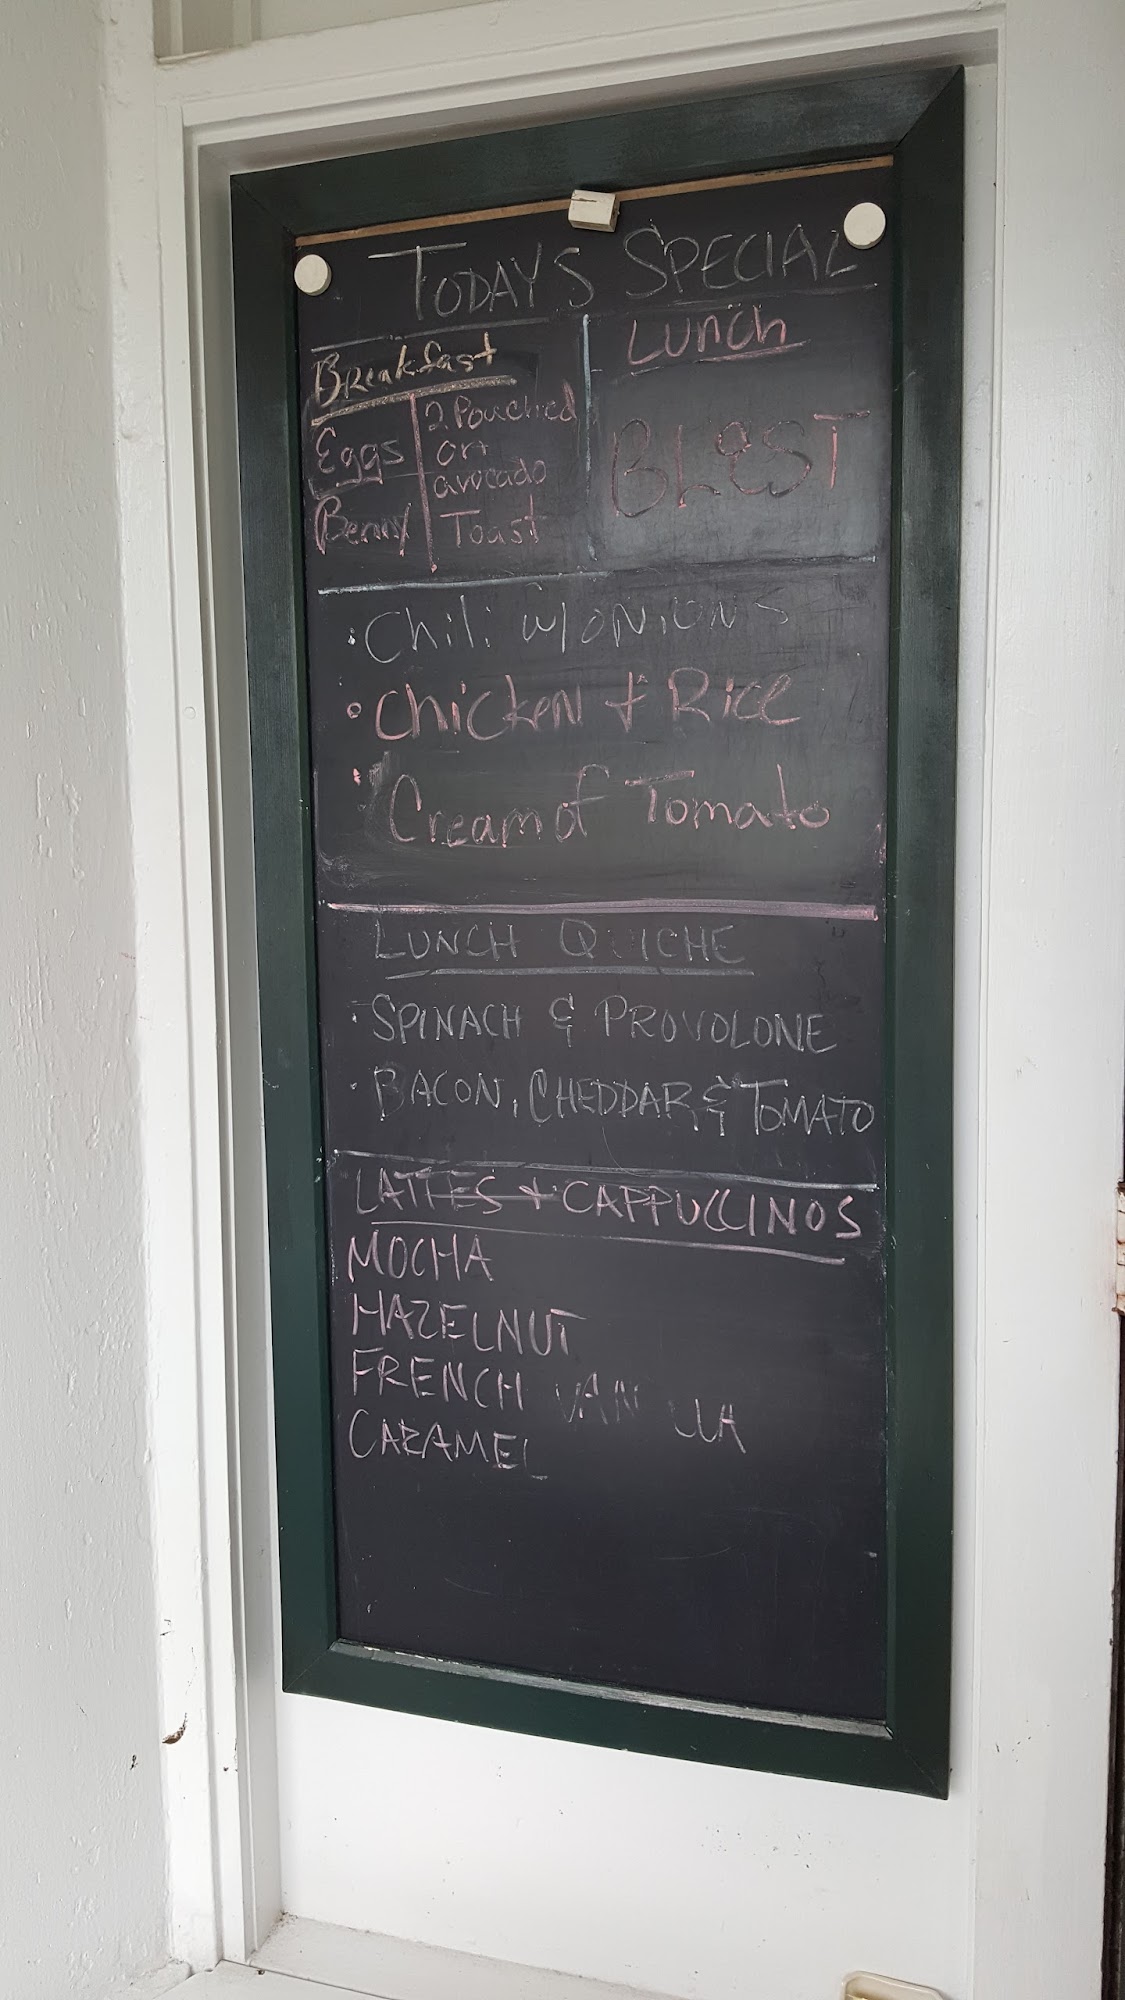 TODAY'S SPECIAL
Breakfast
Eggs
Benny
2 Pouched
on
avocado
Toast
Lunch
BLeST
• Chili w/ ONIONS
• Chicken + Rice
• Cream of Tomato
LUNCH QUICHE
• SPINACH & PROVOLONE
• BACON, CHEDDAR & TOMATO
LATTES + CAPPUCCINOS
MOCHA
HAZELNUT
FRENCH VANILLA
CARAMEL